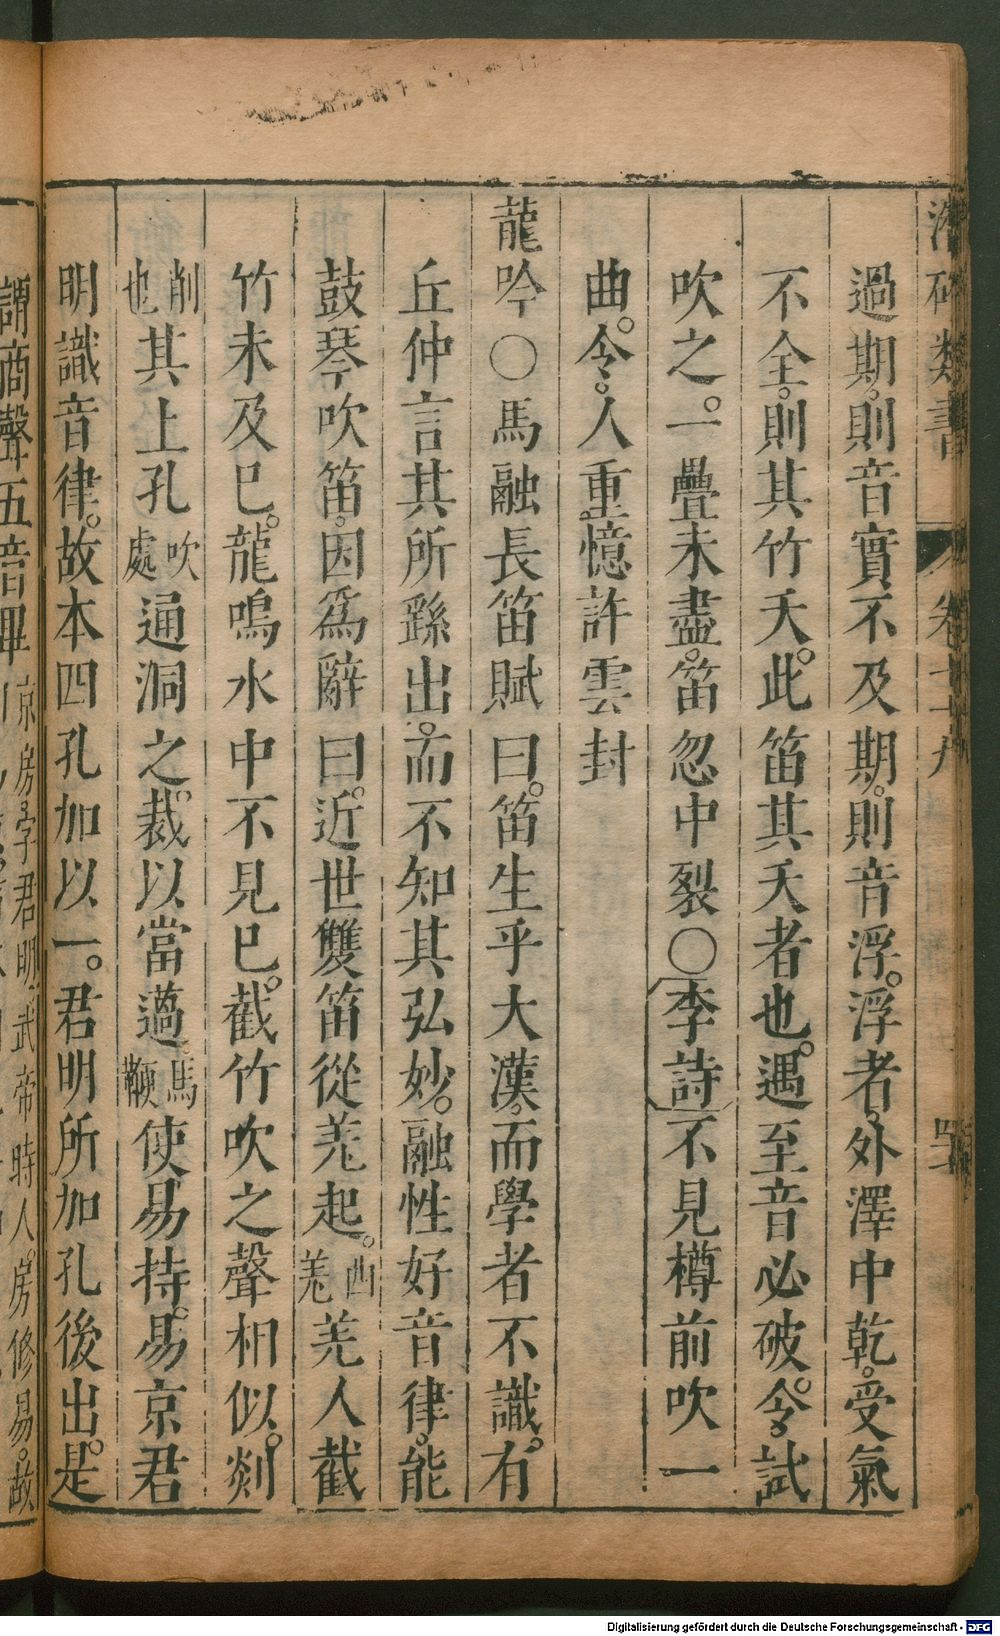 過期。則音實。不及期。則音浮。浮者。外澤中乾。受氣
不全。則其竹夭。此笛其夭者也。遇至音必破。令試
吹之。一疊未盡。笛忽中裂〇李詩不見樽前吹一
曲。令人重憶許雲封
龍吟〇馬融長笛賦曰。笛生乎大漢。而學者不識。有
丘仲言其所繇出。而不知其弘妙。融性好音律。能
鼓琴吹笛。因爲辭曰。近世雙笛從羌起。西羌羌人截
竹未及已。龍鳴水中不見已。截竹吹之聲相似。剡
削也其上孔吹處通洞之。裁以當薖馬鞭使易持。易京君
明識音律。故本四孔加以一。君明所加孔後出。是
謂商聲五音畢京房字君明武帝時人房修易。故
類書
卷十九
Digitalisierung gefördert durch die Deutsche Forschungsgemeinschaft - DFG